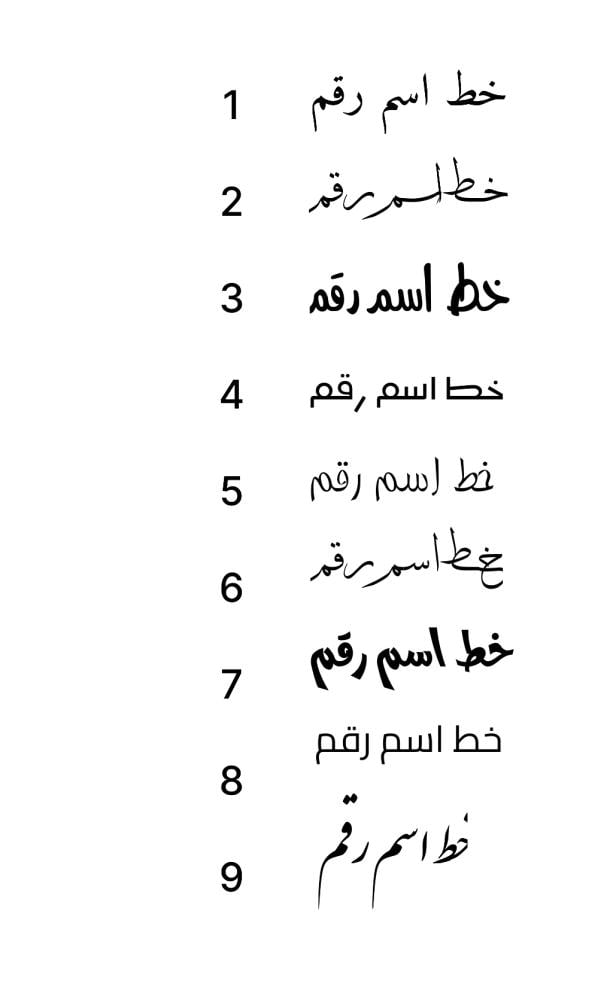 خط اسم رقم 1
خط اسم رقم 2
خط اسم رقم 3
خط اسم رقم 4
خط اسم رقم 5
خط اسم رقم 6
خط اسم رقم 7
خط اسم رقم 8
خط اسم رقم 9